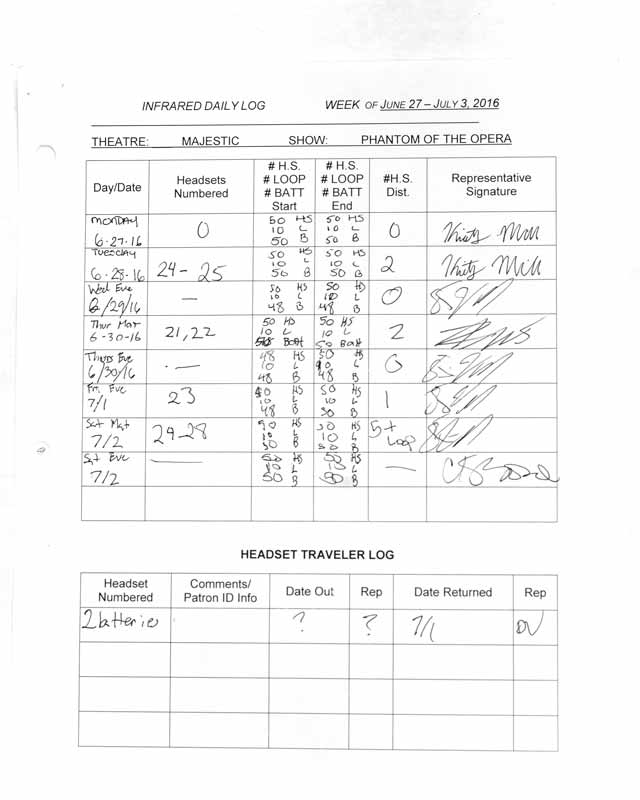 INFRARED DAILY LOG WEEK OF JUNE 27 – JULY 3, 2016
THEATRE: MAJESTIC SHOW: PHANTOM OF THE OPERA
Day/Date
Headsets
Numbered
# H.S.
# LOOP
# BATT
Start
# H.S.
# LOOP
# BATT
End
#H.S.
Dist.
Representative
Signature
MONDAY
6-27-16
0
50 HS
10 L
50 B
50 HS
10 L
50 B
0
TUESDAY
6-28-16
24-25
50 HS
10 L
50 B
50 HS
10 L
50 B
2
Wed Eve
6/29/16
—
50 HS
10 L
48 B
50
10 L
48 B
0
Thur Mat
6-30-16
21,22
50 HS
10 L
Batt
50 HS
10 L
50 Batt
2
Thurs Eve
6/30/16
—
48 HS
10 L
48 B
50 HS
L
48 B
0
Fri. Eve
7/1
23
50 HS
10 L
48 B
50 HS
10 L
50 B
1
Sat Mat
7/2
24-28
50 HS
10 L
50 B
50 HS
10 L
50 B
5+
Loop
Sat Eve
7/2
—
50 HS
10 L
50 B
50 HS
10 L
50 B
—
HEADSET TRAVELER LOG
Headset
Numbered
Comments/
Patron ID Info
Date Out
Rep
Date Returned
Rep
2 batteries
?
?
7/1
DV